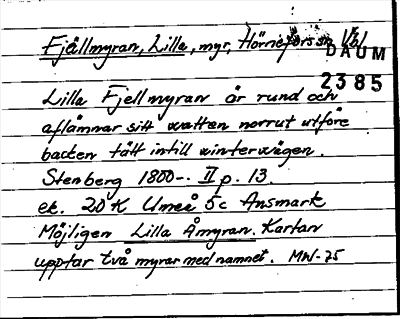 Fjällmyran, Lilla, myr, Hörnefors sn, Vb
DAUM
2385
Lilla Fjellmyran är rund och
aflämnar sitt watten norrut utföre
backen tätt intill winterwägen.
Stenberg 1800-. II p. 13.
ek. 20 K Umeå 5c Ansmark
Möjligen Lilla Åmyran. Kartan
upptar två myrar med namnet. MW-75